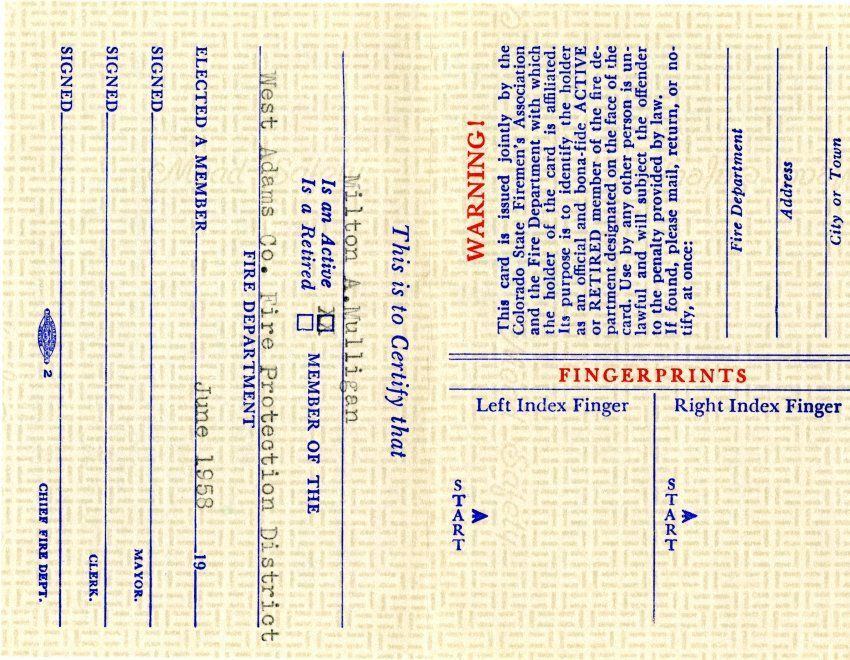 This is to Certify that
Milton A.Mulligan
Is an Active XX
Is a Retired
MEMBER OF THE
West Adams Co. Fire Protection District
FIRE DEPARTMENT
ELECTED A MEMBER June 1958 19
SIGNED MAYOR.
SIGNED CLERK.
SIGNED CHIEF FIRE DEPT.
2
WARNING!
This card is issued jointly by the
Colorado State Firemen's Association
and the Fire Department with which
the holder of the card is affiliated.
Its purpose is to identify the holder
as an official and bona-fide ACTIVE
or RETIRED member of the fire de-
partment designated on the face of the
card. Use by any other person is un-
lawful and will subject the offender
to the penalty provided by law.
If found, please mail, return, or no-
tify, at once:
Fire Department
Address
City or Town
FINGERPRINTS
Left Index Finger
Right Index Finger
START
START